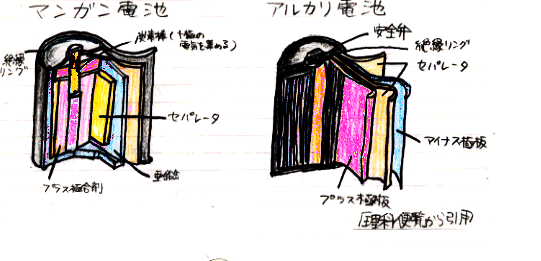 マンガン電池
炭素棒(十極の
電気を集める)
絶縁
リング
セパレータ
亜鉛缶
プラス極合剤
アルカリ電池
安全弁
絶縁リング
セパレータ
マイナス極板
プラス極板
理科便覧から引用